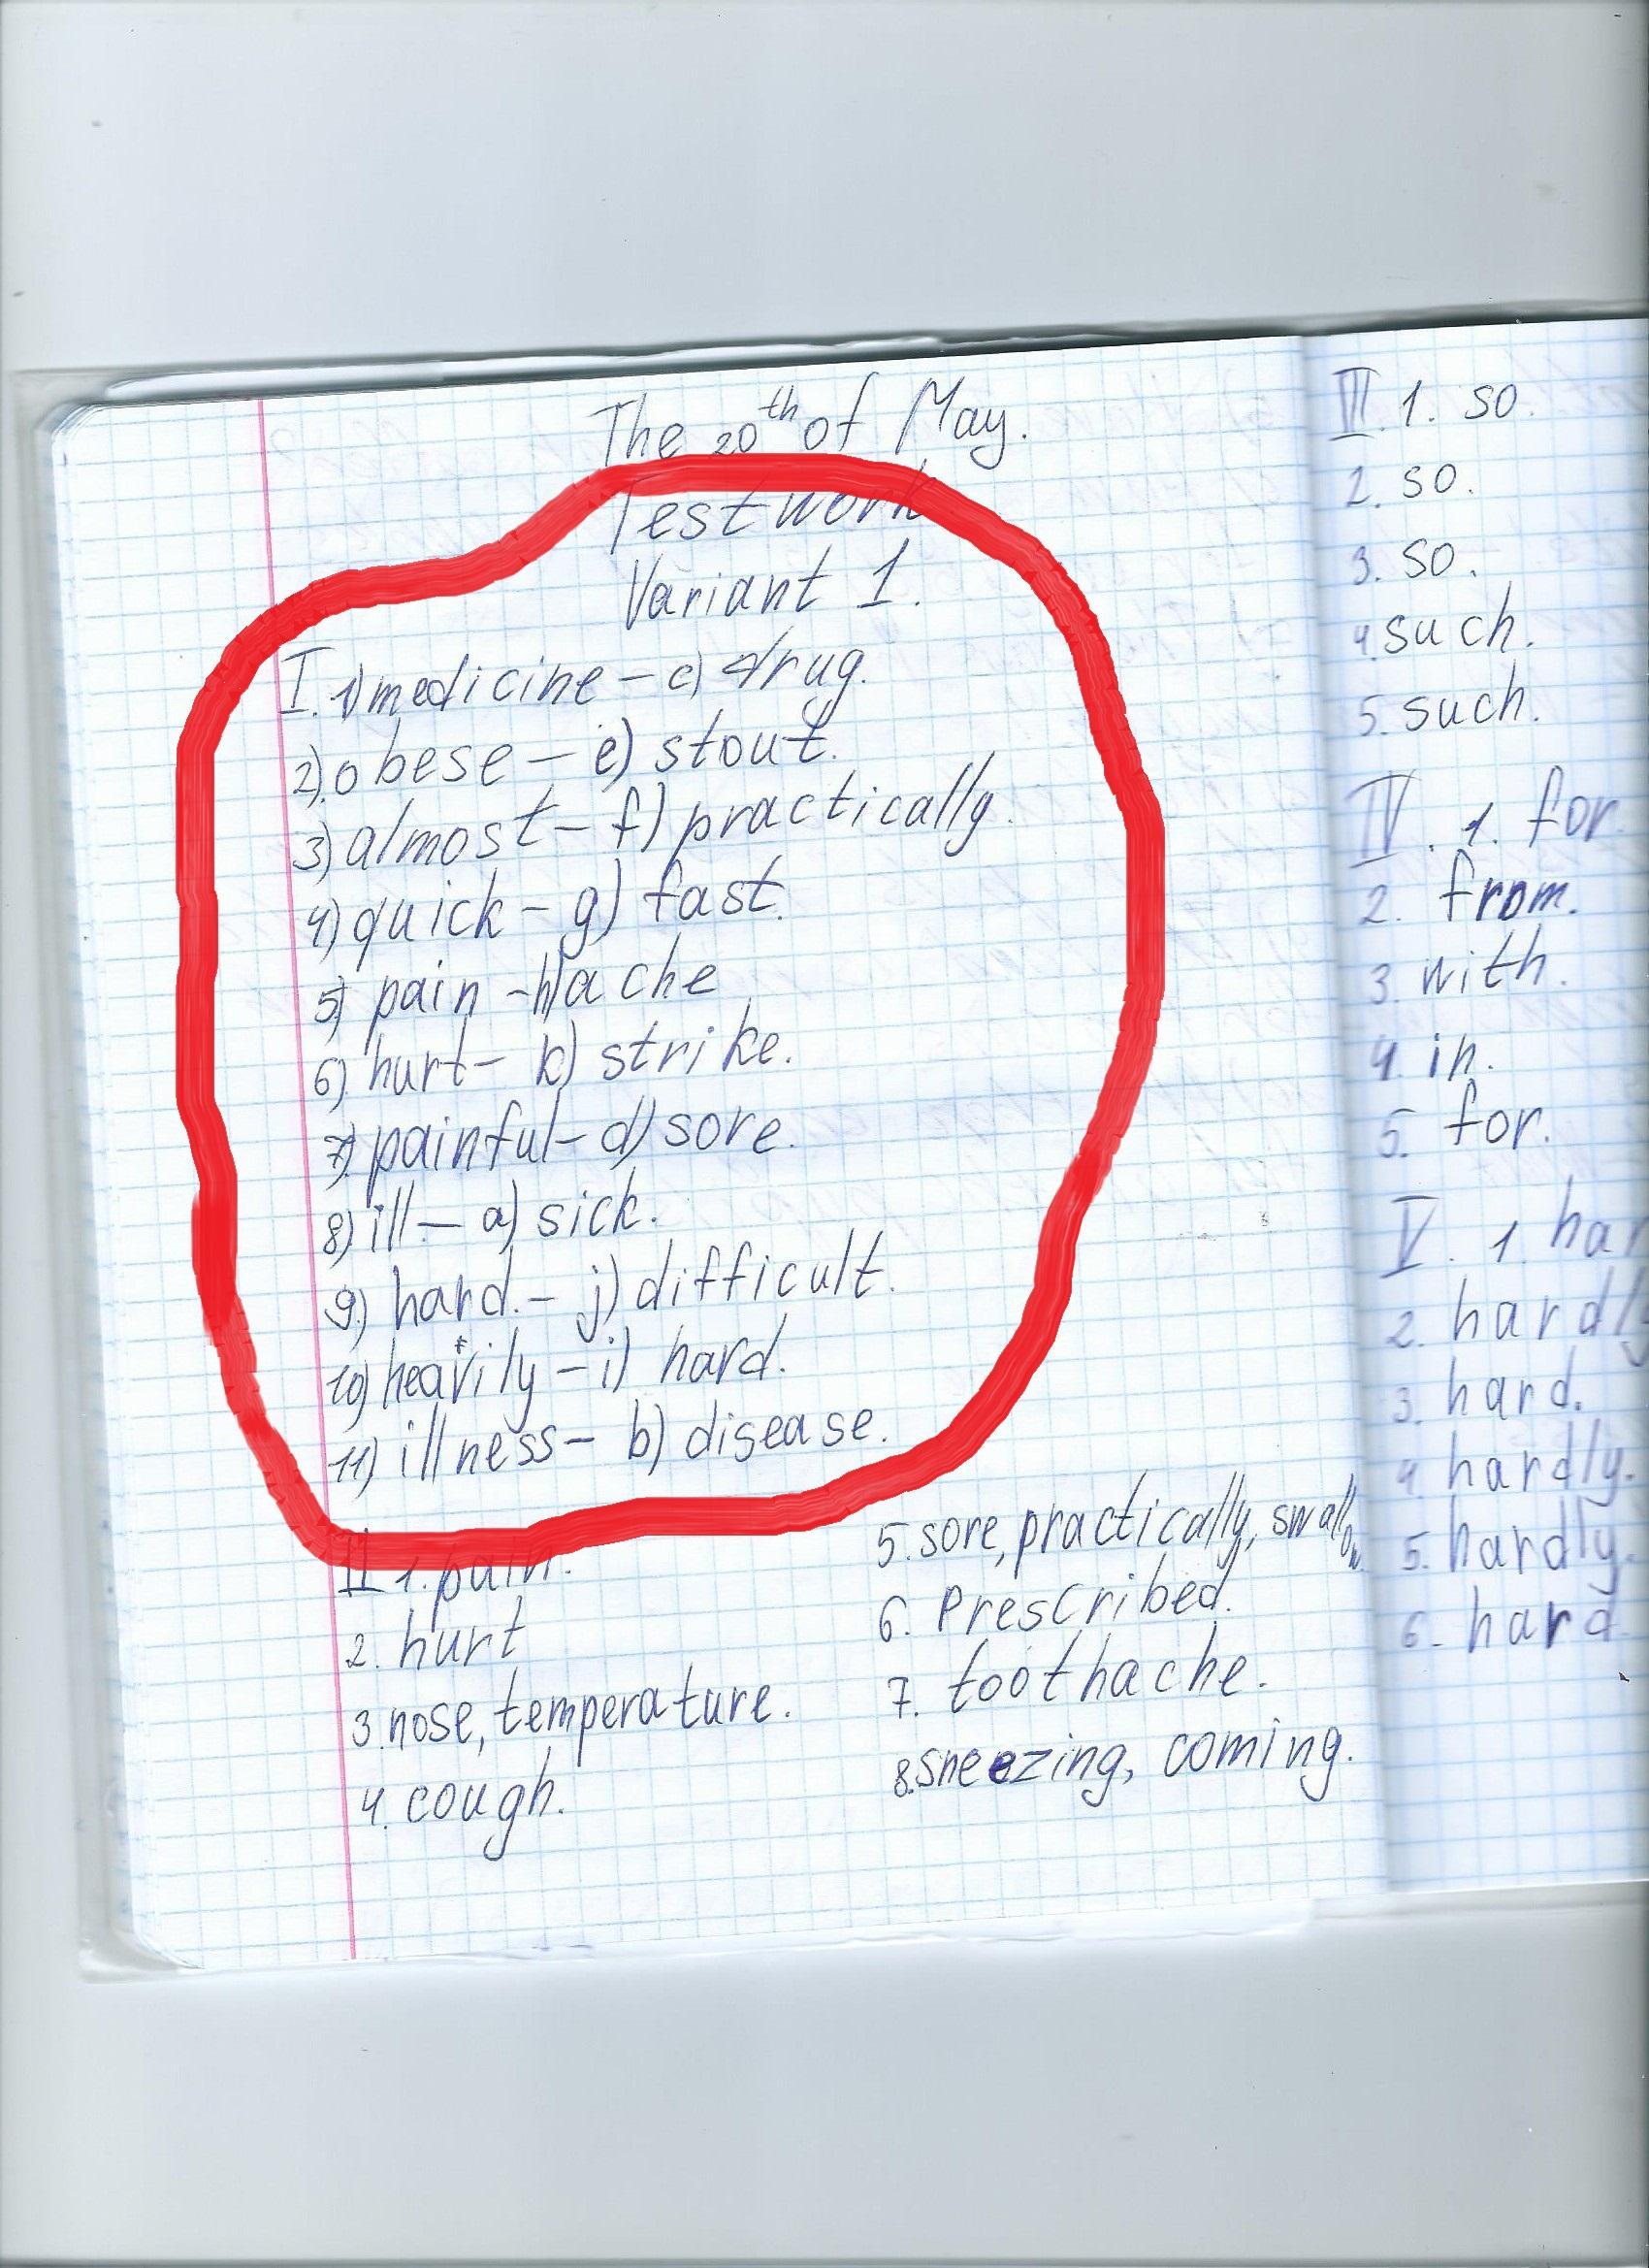 The 20th of May.
Test work
Variant 1.
I. 1) medicine – c) drug.
2). obese – e) stout.
3) almost – f) practically.
4) quick – g) fast.
5) pain – h) ache
6) hurt – k) strike.
7) painful – d) sore.
8) ill – a) sick.
9) hard. – j) difficult.
10) heavily – i) hard.
11) illness – b) disease.
II 1. pain.
2. hurt
3. nose, temperature.
4. cough.
5. sore, practically, swallow
6. Prescribed.
7. toothache.
8. sneezing, coming.
III. 1. so.
2. so.
3. so.
4. such.
5. such.
IV. 1. for.
2. from.
3. with.
4. in.
5. for.
V. 1 har
2. hardly
3. hard.
4. hardly.
5. hardly.
6. hard